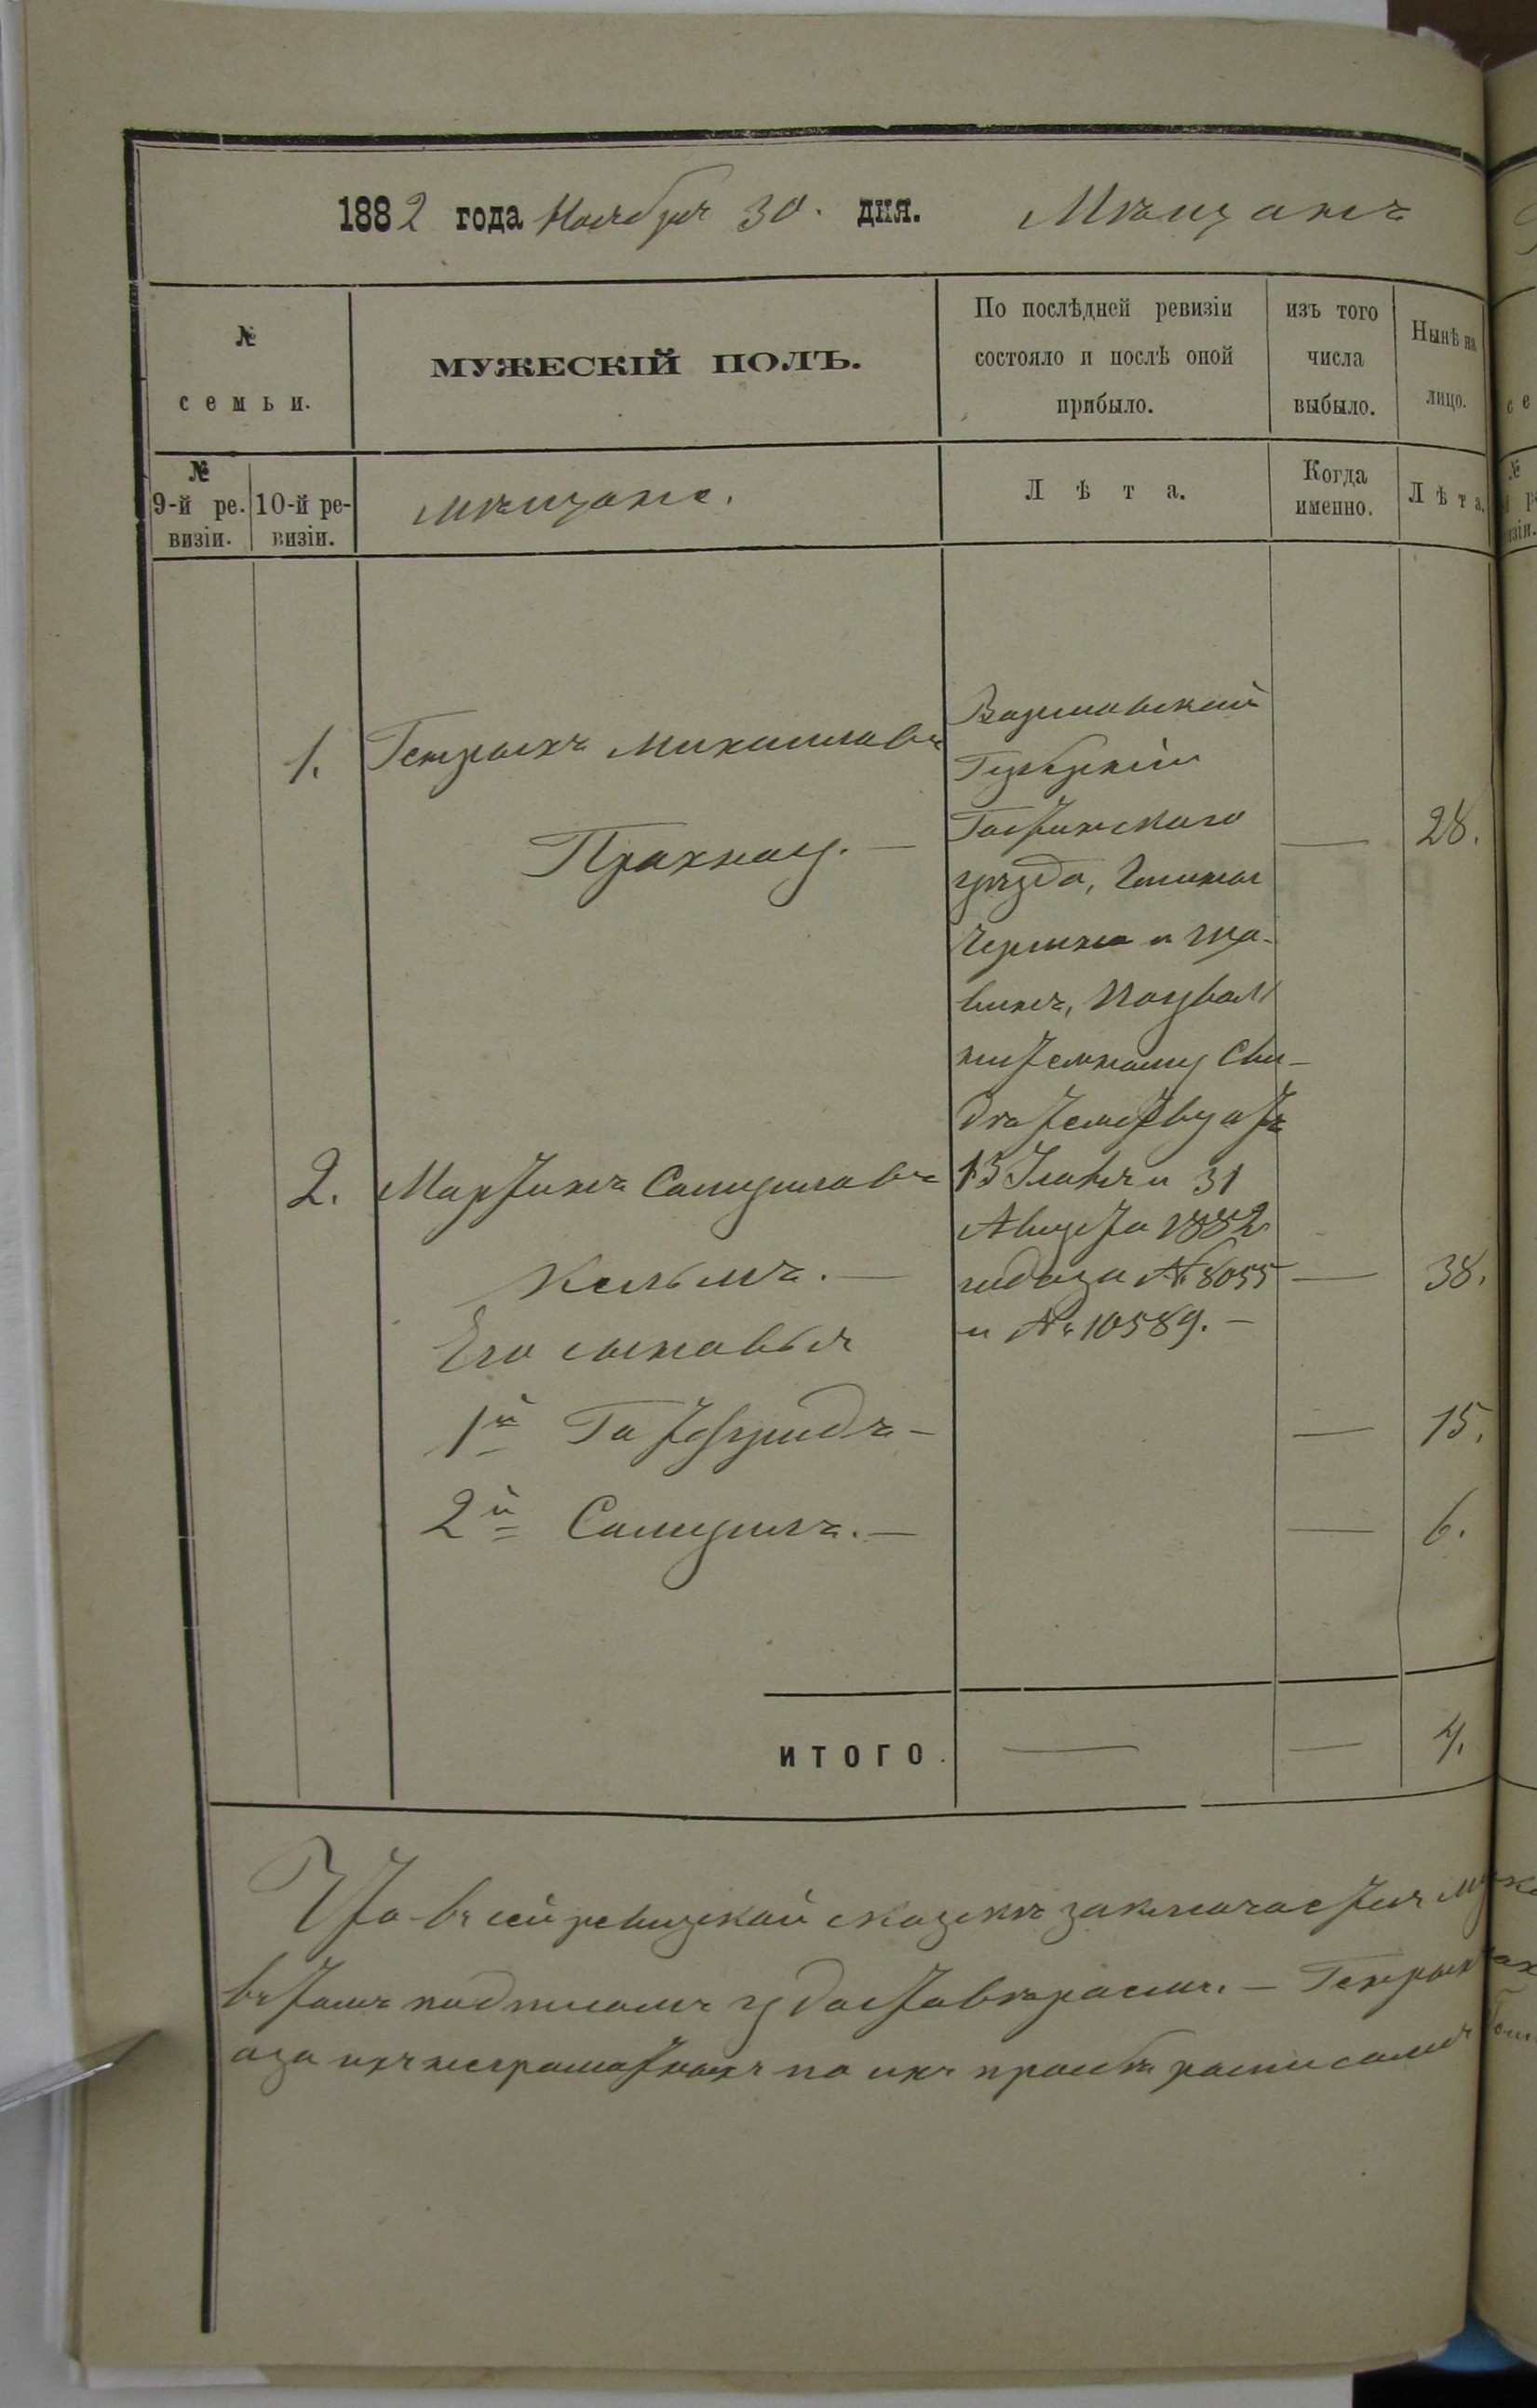 1882 года Ноября 30. дня. Мѣщанъ
№ семьи.
МУЖЕСКІЙ ПОЛЪ.
По послѣдней ревизіи состояло и послѣ оной прибыло.
изъ того числа выбыло.
Нынѣ на лицо.
№ 9-й ре-визіи.
10-й ре-визіи.
мѣщане.
Лѣта.
Когда именно.
Лѣта.
1. Генрыхъ Михайловъ
Прахнау. —
Варшавской
Губерніи
Гостинскаго
уѣзда, Гмины
Червина и
винъ, по увол
нительному Сви-
дѣтельству отъ
15 Іюля и 31
Августа 1882
года за № 8055
и № 10589. —
— 28.
2. Мартинъ Самуиловъ
Кельмъ. — — 38.
Его сыновья
1й Готфридъ — — 15.
2й Самуилъ. — — 6.
ИТОГО. — — 4.
Что въ сей ревизской сказкѣ заключается
въ томъ подписомъ удостовѣряемъ. — Генрых
а за ихъ неграмотныхъ по ихъ просьбѣ расписался